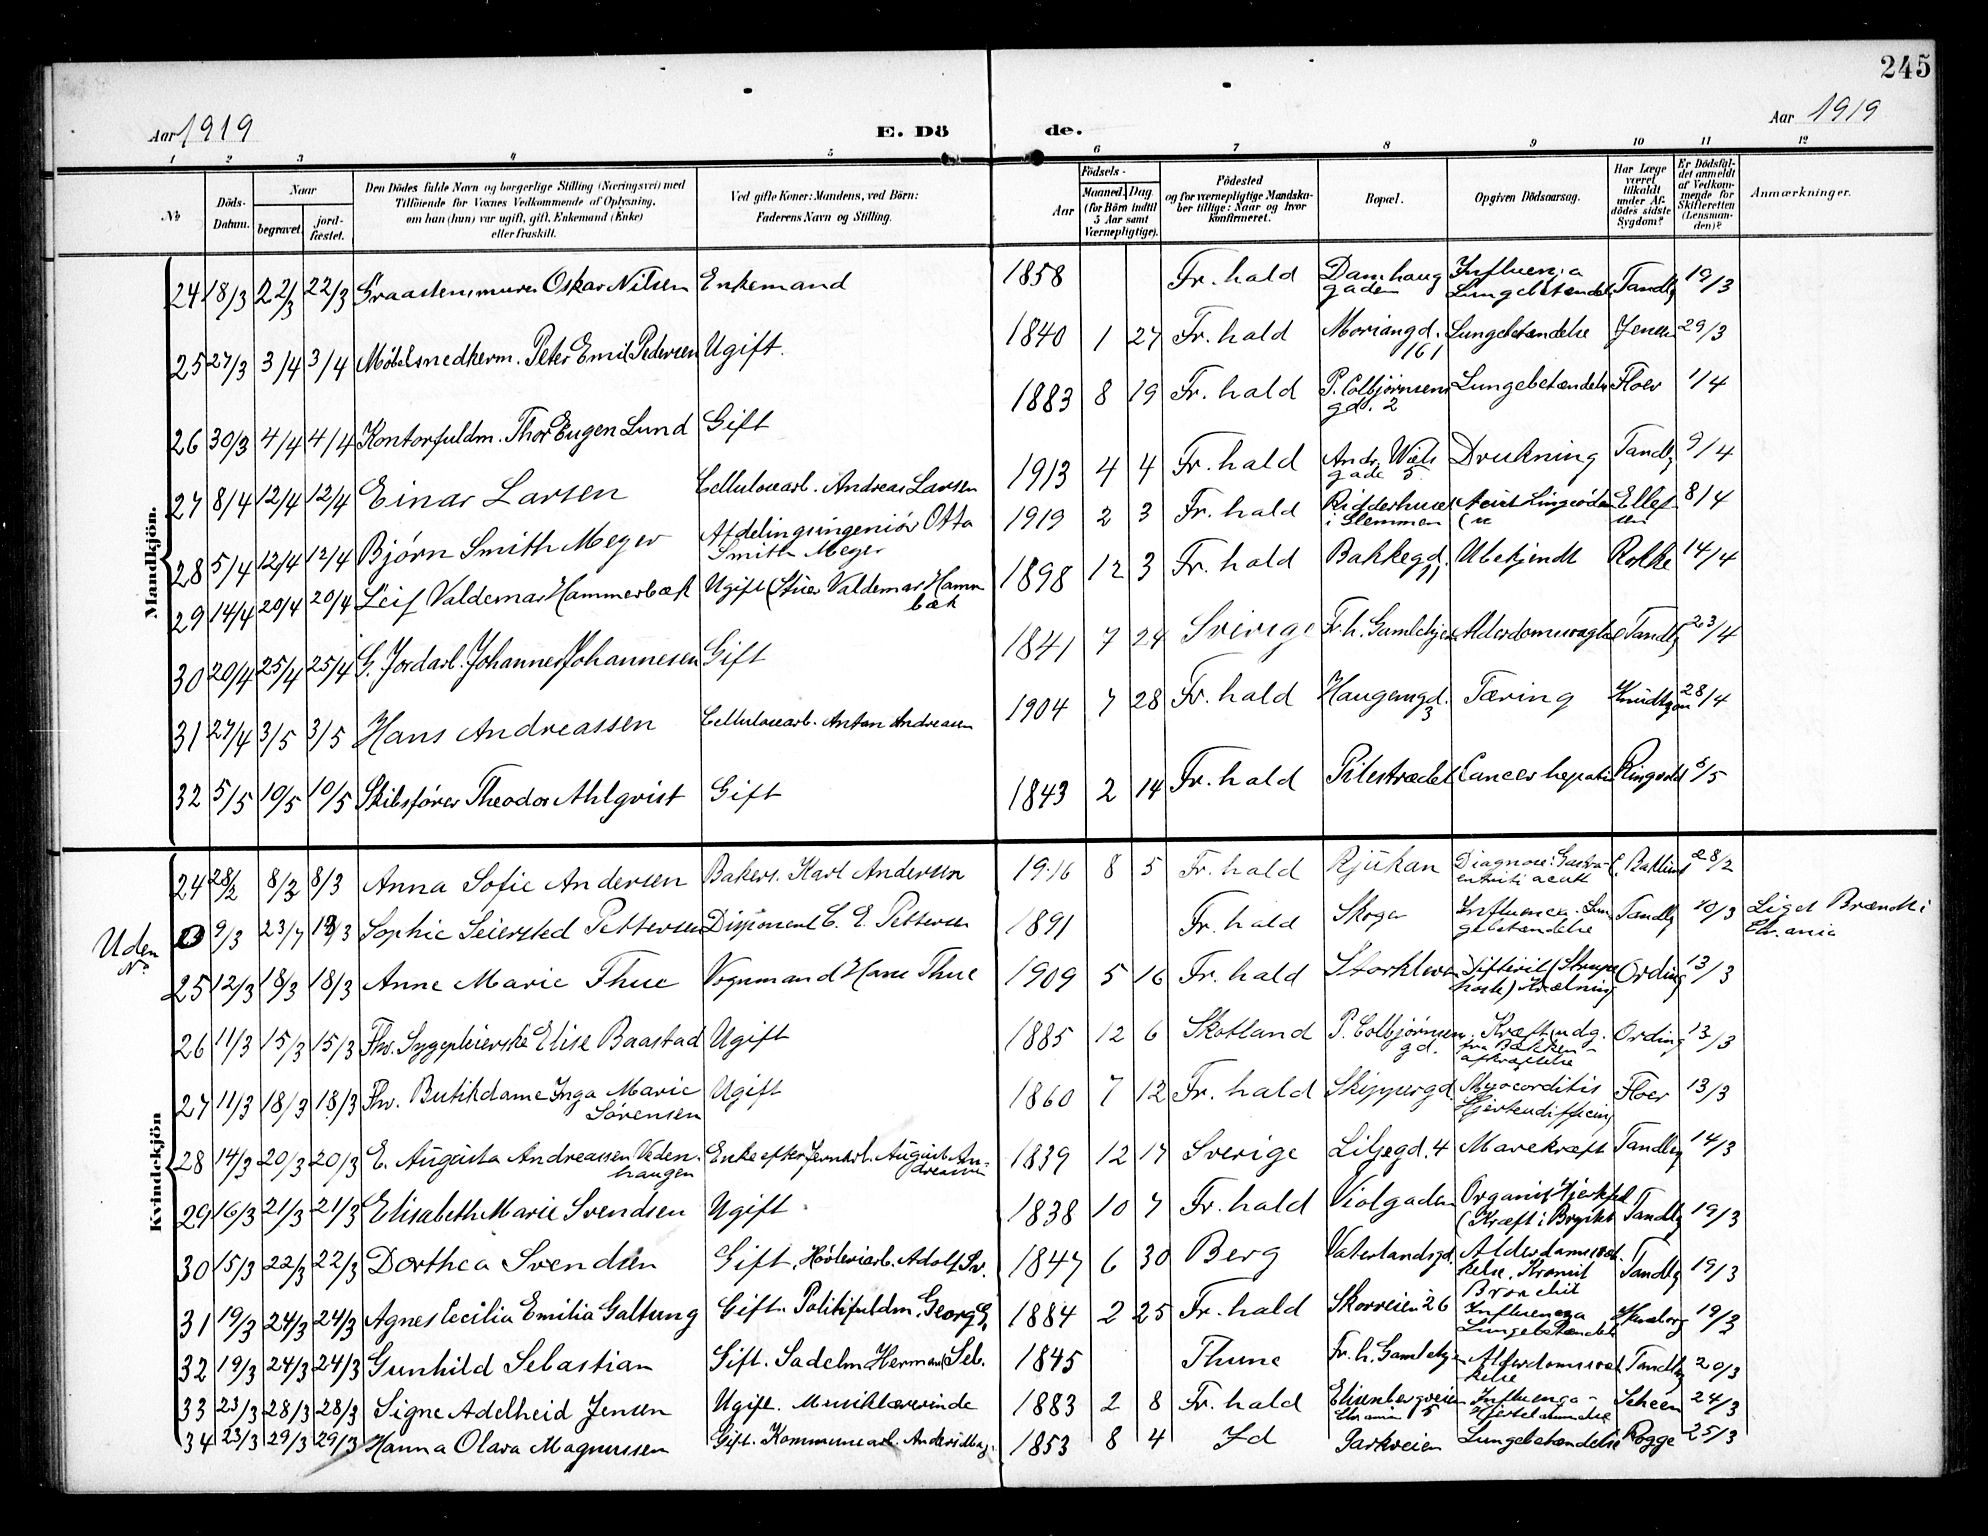 245
Aar 1919 E. Dö de. Aar 1919
1 2 3 4 5 6 7 8 9 10 11 12
No Döds-Datum. Naar begravet. jord-fæstet. Den Dödes fulde Navn og borgerlige Stilling (Næringsvei) med Tilföiende for Voxnes Vedkommende af Oplysning, om han (hun) var ugift, gift, Enkemand (Enke) eller fraskilt. Ved gifte Koner: Mandens, ved Börn: Faderens Navn og Stilling. Födsels- Aar Maaned. Dag. (for Börn indtil 5 Aar samt Værnepligtige). Födested og for værnepligtige Mandskaber tillige: Naar og hvor konfirmeret. Bopæl. Opgiven Dödsaarsag. Har Læge været tilkaldt under Afdödes sidste Sygdom? Er Dödsfaldet anmeldt af Vedkommende for Skifteretten (Lensmanden)? Anmærkninger.
Mandkjön.
24 18/3 22/3 22/3 Graastensmurer Oskar Nilsen Enkemand 1858 Fr.hald Damhaug gaden Influenza Lungebetændel Tandbg 19/3
25 27/3 3/4 3/4 Møbelsnedkerm. Peter Emil Pedersen Ugift. 1840 1 27 Fr.hald Moriangd. 161 Lungebetændelse Jensen 29/3
26 30/3 4/4 4/4 Kontorfuldm. Thor Eugen Lund Gift 1883 8 19 Fr.hald P. Colbjørnsens gd. 2 Lungebetændelse Floer 1/4
27 8/4 12/4 12/4 Einar Larsen Cellulosearb. Andreas Larsen 1913 4 4 Fr.hald Andr. Wiels gade 5 Drukning Tandbg 9/4
28 5/4 12/4 12/4 Bjørn Smith Meyer Afdelingsingeniør Otto Smith Meyer 1919 2 3 Fr.hald i Glemmen Acut Ellefsen 8/4
29 14/4 20/4 20/4 Leif Valdemar Hammerbæk Ugift (Stuer Valdemar Hammbæk 1898 12 3 Fr.hald Bakkegd. 11 Ubekjendt Rolke 14/4
30 20/4 25/4 25/4 G. Jordarb. Johannes Johannesen Gift 1841 7 24 Sverige Fr.h. Gamlehjem Alderdomssvaghe Tandbg 23/4
31 27/4 3/5 3/5 Hans Andreassen Cellulosearb. Anton Andreasen 1904 7 28 Fr.hald Haugemgd. 3 Tæring Knudtzon 28/4
32 5/5 10/5 10/5 Skibsfører Theodor Ahlqvist Gift 1843 2 14 Fr.hald Pilestrædet Cancer hepatis Ringvold 5/5
Kvindekjön
24 28/2 8/3 8/3 Anna Sofie Andersen Bakers. Karl Andersen 1916 8 5 Fr.hald Rjukan Diagnose: Gastro-enterit acutt 28/2
Uden No 9/3 23/7 13/3 Sophie Seiersted Pettersen Disponent C. E. Pettersen 1891 Fr.hald Skoger Influenza. Lungebetændelse Tandbg 10/3 Liget Brændt i Chr.ania
25 12/3 18/3 18/3 Anne Marie Thue Vognmand Hans Thue 1909 5 16 Fr.hald Difterit (Strupehoste) Kvælning Ording 13/3
26 11/3 15/3 15/3 Fhv. Sygepleierske Elise Baastad Ugift 1885 12 6 Skotland P. Colbjørnsen gd. Kræft udg. fra Bækken - afkræftelse Ording 13/3
27 11/3 18/3 18/3 Fhv. Butikdame Inga Marie Sørensen Ugift 1860 7 12 Fr.hald Skippergd Myocorditis Floer 13/3
28 14/3 20/3 20/3 E. Augusta Andreassen Vedenhaugen Enke efter Jernarb. August Andreasen 1839 12 17 Sverige Liljegd. 4 Mavekræft Tandbg 14/3
29 16/3 21/3 21/3 Elisabeth Marie Svendsen Ugift 1838 10 7 Fr.hald Violgaden Organisk Hjertefeil (Kræft i Brystet Tandbg 19/3
30 15/3 22/3 22/3 Dorthea Svendsen Gift, Høvleriarb. Adolf Sv. 1847 6 30 Berg Vaterlandsgd. Alderdomssvækkelse. Kronisk Bronchit Tandbg 19/3
31 19/3 24/3 24/3 Agnes Cecilia Emilia Galtung Gift. Politifuldm. Georg G. 1884 2 25 Fr.hald Skovveien 26 Influenza Lungebetændel 19/3
32 19/3 24/3 24/3 Gunhild Sebastian Gift. Sadelm Herman Seb. 1845 Thune Fr.h. Gamlehjem Alderdomssvækkelse Tandbg 20/3
33 23/3 28/3 28/3 Signe Adelheid Jensen Ugift. Musiklærerinde 1883 2 8 Fr.hald Elisenbergveien 5 Influenza - Scheen 24/3
34 23/3 29/3 29/3 Hanna Olava Magnussen Gift. Kommunearb. 1853 8 4 Id Parkveien Lungebetændelse Rogge 25/3